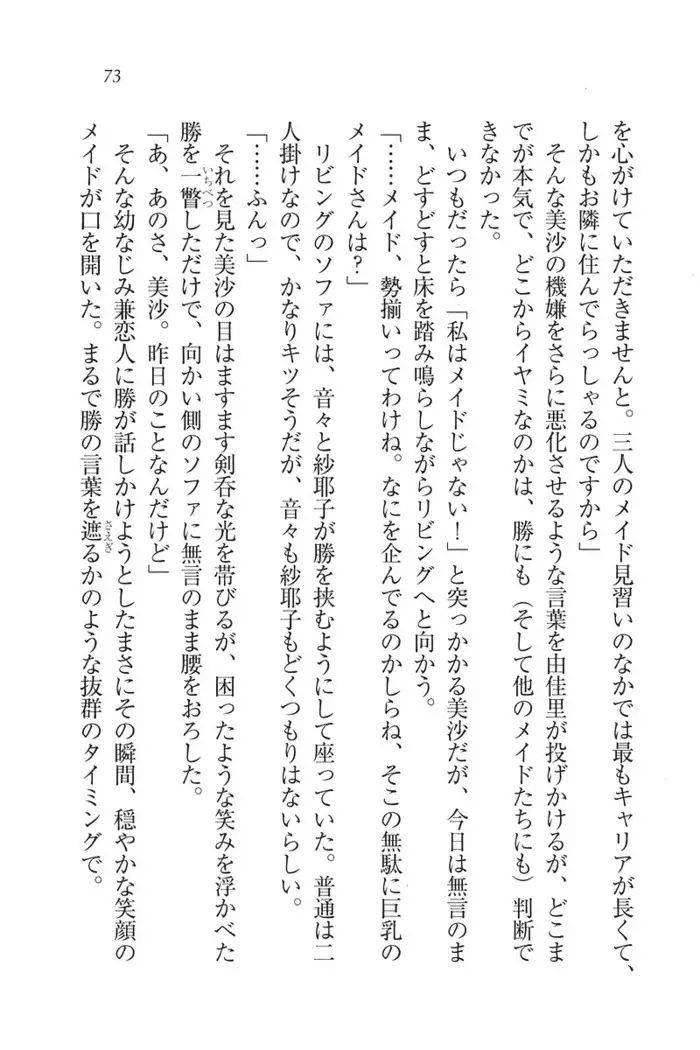 73
を心がけていただきませんと。三人のメイド見習いのなかでは最もキャリアが長くて、
しかもお隣に住んでらっしゃるのですから」
そんな美沙の機嫌をさらに悪化させるような言葉を由佳里が投げかけるが、どこま
でが本気で、どこからイヤミなのかは、勝にも（そして他のメイドたちにも）判断で
きなかった。
いつもだったら「私はメイドじゃない！」と突っかかる美沙だが、今日は無言のま
ま、どすどすと床を踏み鳴らしながらリビングへと向かう。
「……メイド、勢揃いってわけね。なにを企んでるのかしらね、そこの無駄に巨乳の
メイドさんは？」
リビングのソファには、音々と紗耶子が勝を挟むようにして座っていた。普通は二
人掛けなので、かなりキツそうだが、音々も紗耶子もどくつもりはないらしい。
「……ふんっ」
それを見た美沙の目はますます剣呑な光を帯びるが、困ったような笑みを浮かべた
勝を一瞥いちべつしただけで、向かい側のソファに無言のまま腰をおろした。
「あ、あのさ、美沙。昨日のことなんだけど」
そんな幼なじみ兼恋人に勝が話しかけようとしたまさにその瞬間、穏やかな笑顔の
メイドが口を開いた。まるで勝の言葉を遮さえぎるかのような抜群のタイミングで。